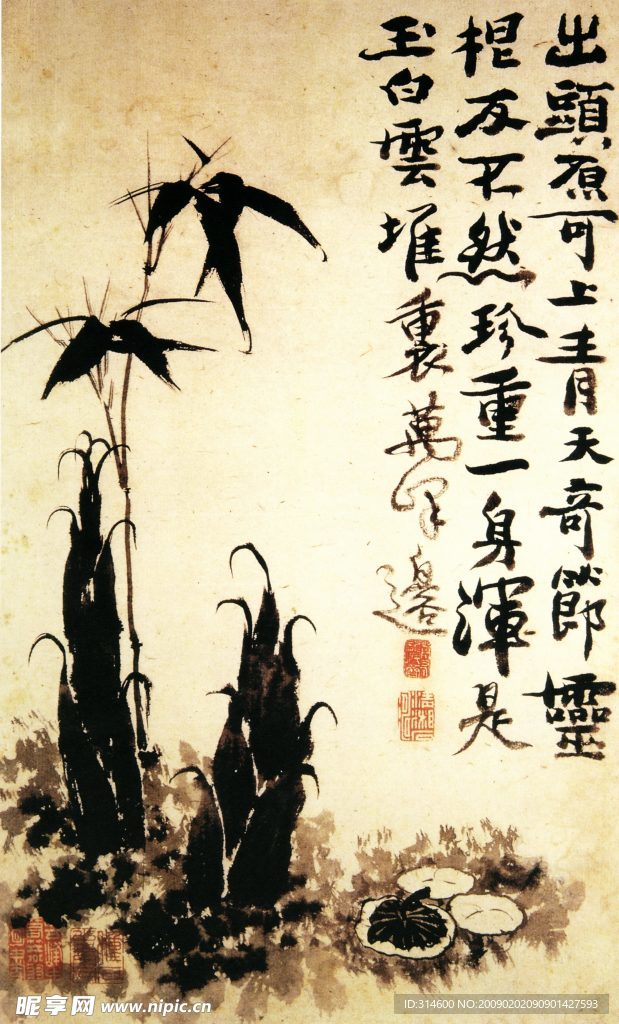 出頭原可上青天奇節靈
根反不然珍重一身渾是
玉白雲堆裏萬峯邊
昵享网 www.nipic.cn
ID:314600 NO:20090202090901427593